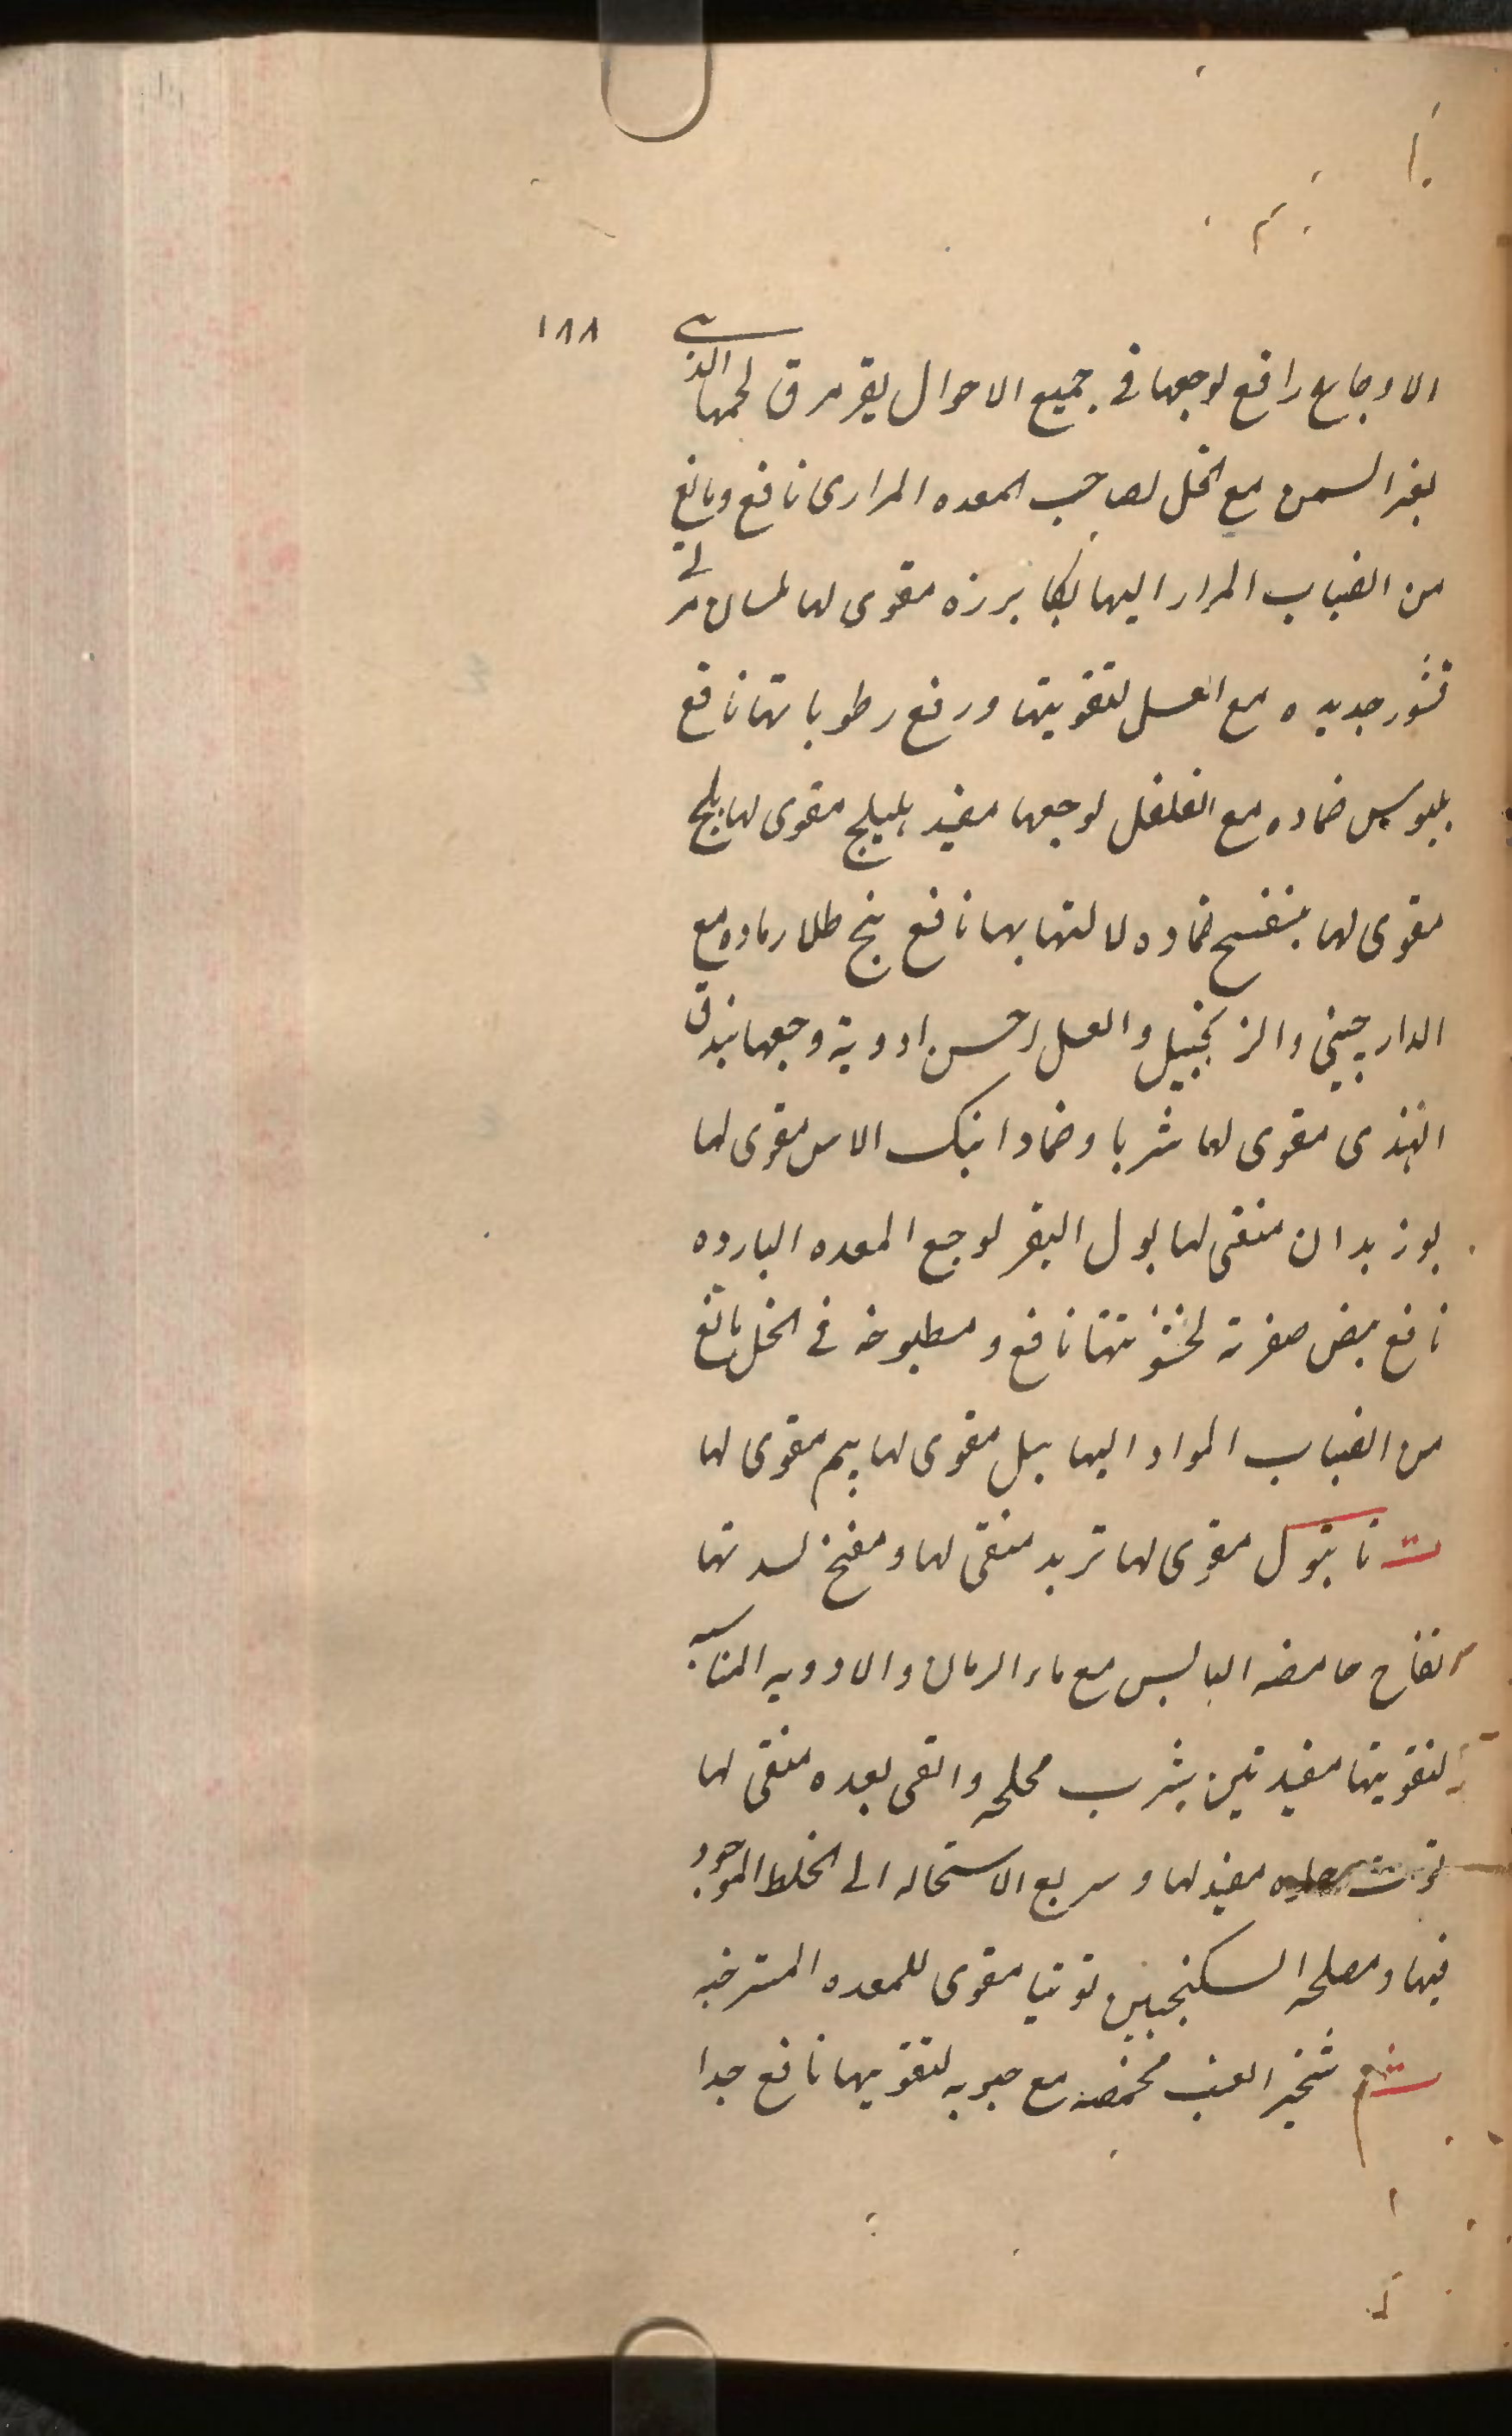 ١٨٨
الاوجاع رافع لوجعها فی جمیع الاحوال بقر مرق لحمها الذی
بغیر السمن مع الخل لصاحب المعده المراری نافع ومانع
من انصباب المرار الیها بکا برزه مقوی لها لسان مر
قشور جدیده مع العسل لتقویتها ورفع رطوباتها نافع
بلبوس ضماده مع الفلفل لوجعها مفید بلیلج مقوی لها بلح
مقوی لها بنفسج ضماده لالتهابها نافع بنج طلا رماده مع
الدارچینی والزنجبیل والعسل احسن ادویة وجعها بندق
الهندی مقوی لها شربا وضمادا بنک الاس مقوی لها
بوزیدان منقی لها بول البقر لوجع المعده البارده
نافع بیض صفرته لخشونتها نافع ومطبوخه فی الخل مانع
من انصباب المواد الیها بیل مقوی لها بیم مقوی لها
ت تانبول مقوی لها تربد منقی لها ومفتح لسدتها
تفاح حامضه الیابس مع ماء الرمان والادویه المناسبه
لتقویتها مفید تین یشرب محلحه والقی بعده منقی لها
توت مفید لها وسریع الاستحاله الی الخلط الموجود
فیها ومصلحه السکنجبین توتیا مقوی للمعده المسترخیه
ث ثجیر العنب محمصه مع حبوبه لتقویتها نافع جدا